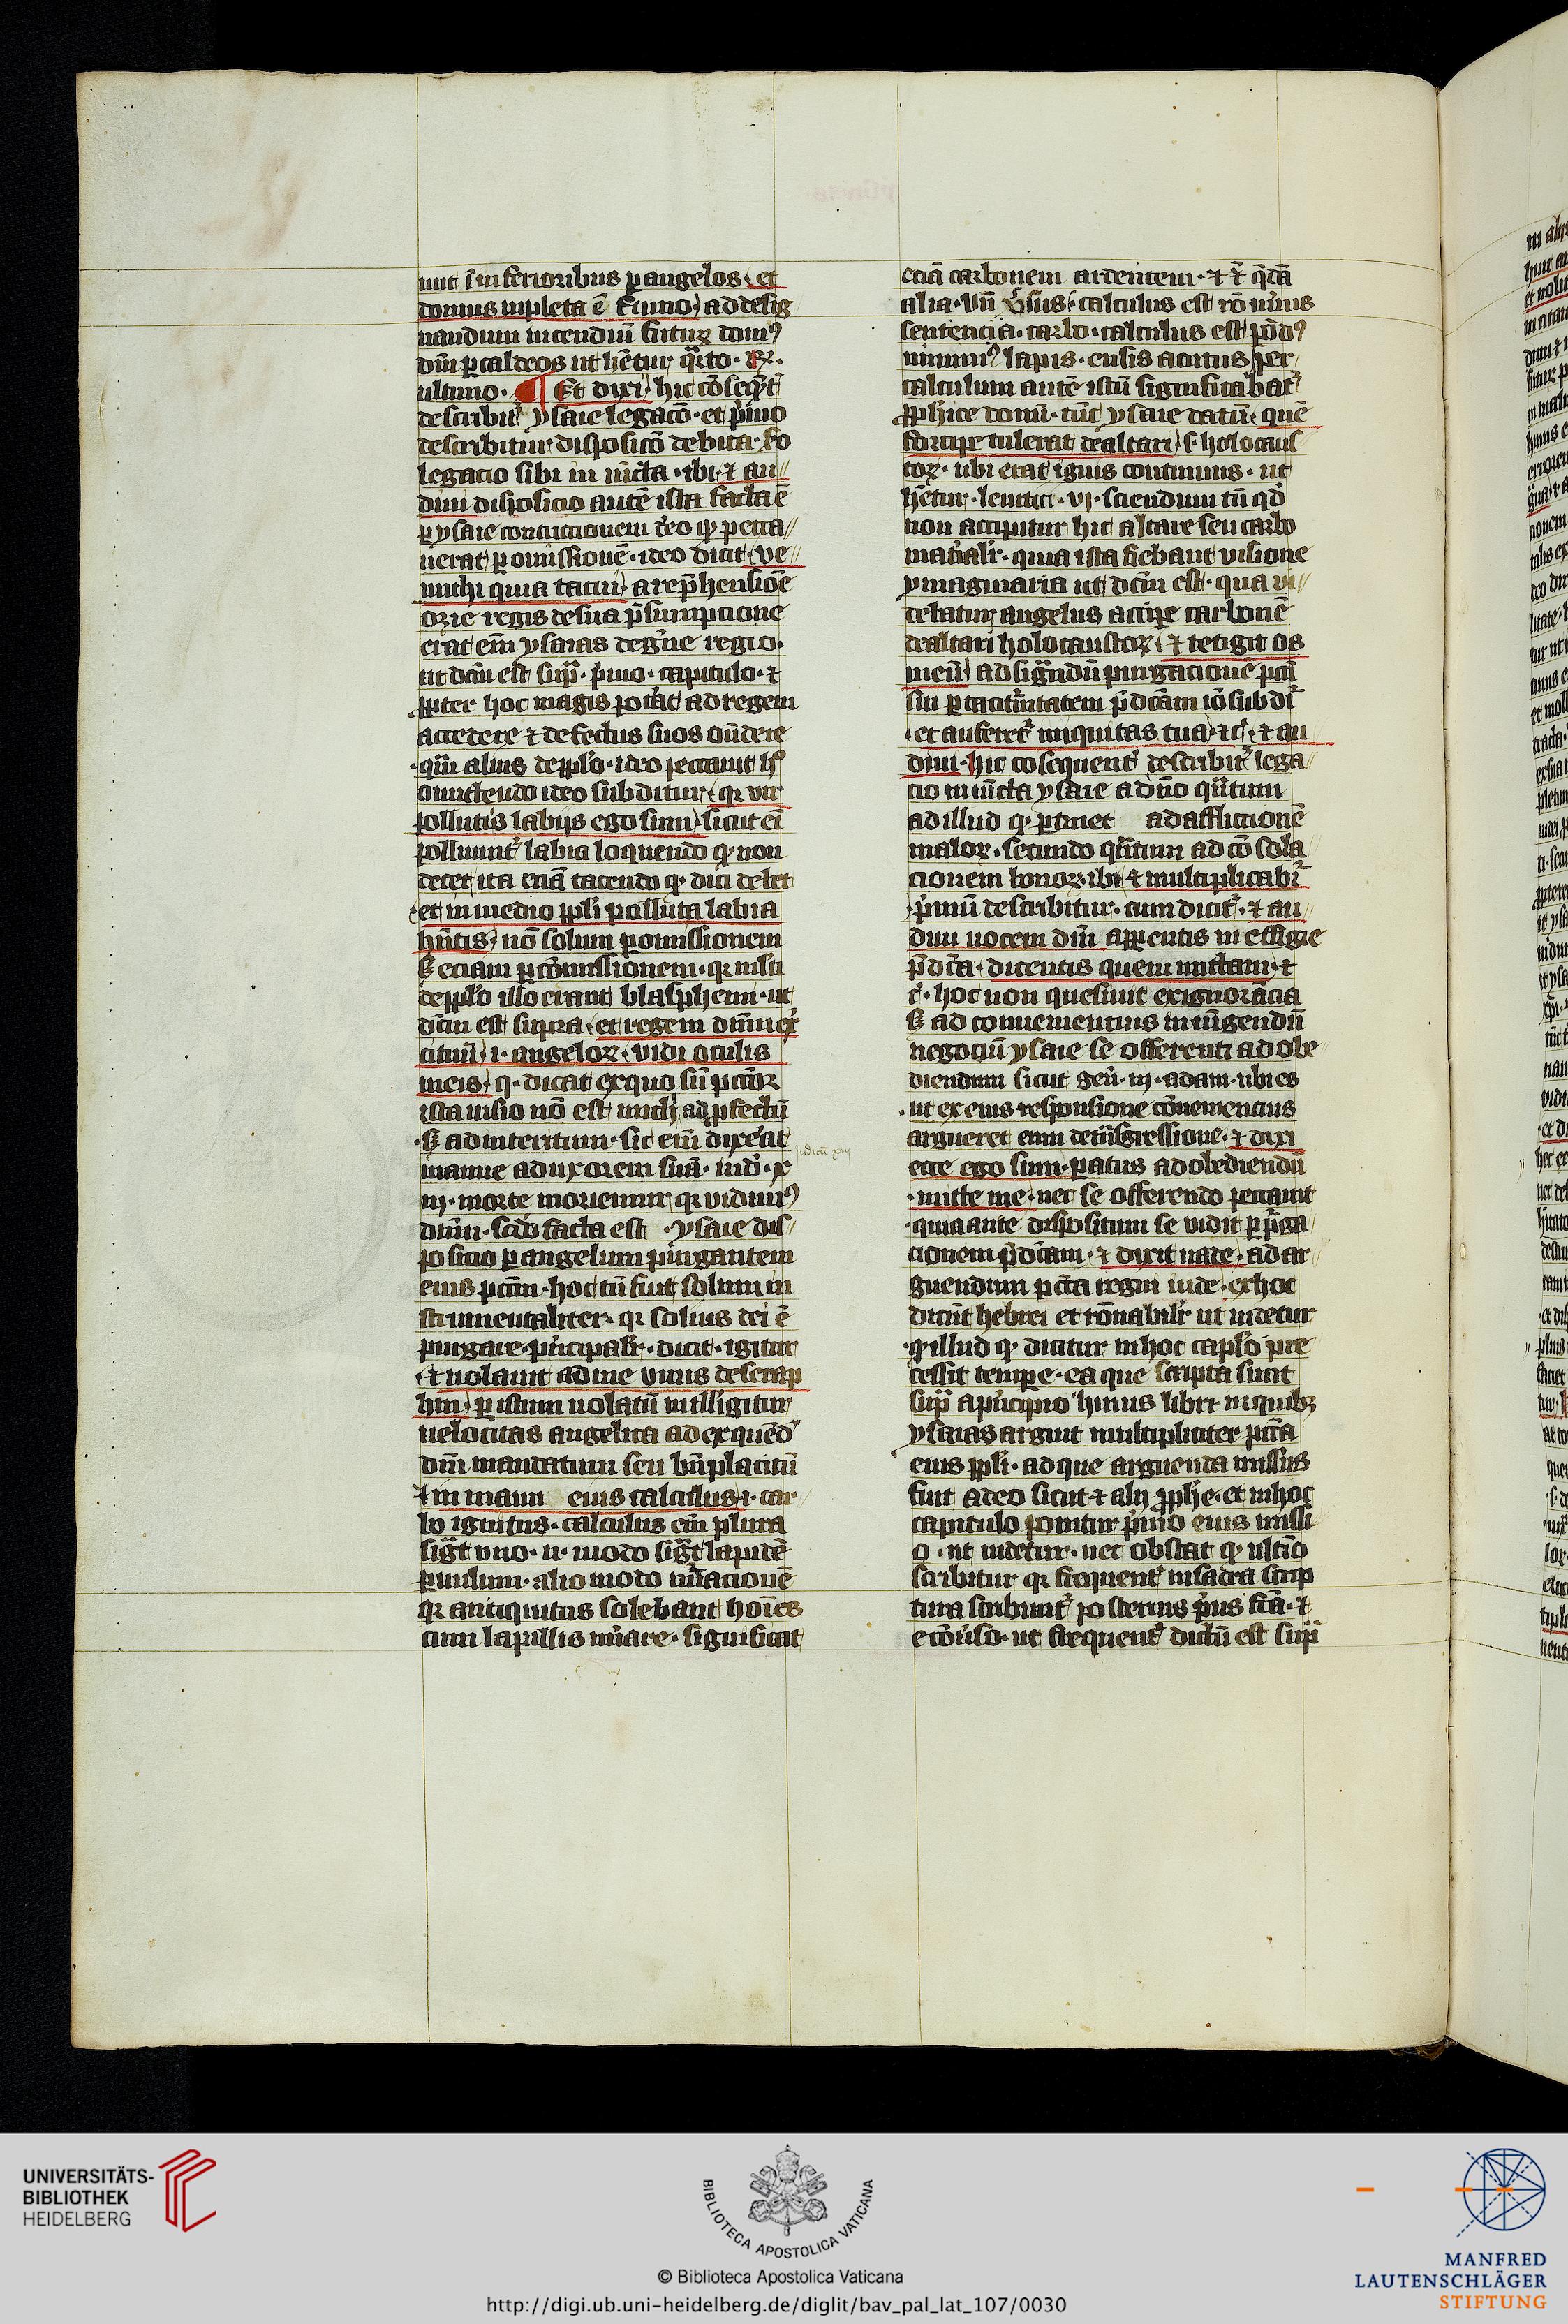 nut i inferioribus p angelos · et
domus inpleta ē fumo ad desig
nandum incendiū futuꝝ domꝰ
dn̄i p caldeos ut hētur q̄rto · ꝶ ·
ultimo · ¶ Et dixi hic cōseqn̄t
describit̉ ysaie legacō · et p̄mo
describitur disposicō debita · Sō
legacio sibi in iūcta · ibi · ⁊ au
diui disposicio autē ista facta ē
p ysaie contricionem de eo ꝙ pecca
uerat p omissionē · ideo dicit · ve
michi quia tacui a rep̄hensiōe
ozie regis de sua p̄sumpcione
erat em̄ ysaias de gn̄e regio ·
ut dc̄m est sup̄ · p̄mo · capitulo · ⁊
ꝓpter hoc magis pot̉at ad regem
accedere ⁊ defectus suos on̄dere
qm̄ alius de pplo · ideo peccauit hͦ
omittendo ideo subditur · qꝛ vir
pollutis labijs ego sum · sicut ei
polluunt̉ labia loquendo ꝙ non
decet ita eciā tacendo ꝙ dici debet
et in medio ppli polluta labia
hn̄tis · nō solum p omissionem
sꝫ eciam p cōmissionem · qꝛ multi
de pplo illo erant blasphemi · ut
dc̄m est supra · et regem dn̄m ex̉
cituū · i · angeloꝝ · vidi oculis
meis · q · dicat ex quo sū pctōꝛ
ista uisio nō est michi ad ꝓfectū
sꝫ ad interitum · sic em̄ dixerat
manue ad uxorem suā · iud̄ · x
iij · morte moriemur qꝛ vidimꝰ
dn̄m · scdo facta est · ysaie dis
posicio p angelum purgantem
eius pctm̄ · hoc tn̄ fuit solum in
strumentaliter · qꝛ solius dei ē
purgare · p̄ncipalit̉ · dicit · igitur
⁊ uolauit ad me vnus de serap
him · p istum uolatū intelligitur
uelocitas angelica ad exquēd̄
dn̄i mandatum seu bn̄placitū
⁊ in manu eius calculus · i · car
bo ignitus · calculus em̄ plura
sigt̄ vno · n · modo sigt̄ lapidē
p uulum · alio modo nūacionē
qꝛ antiquitus solebant hoīes
cum lapillis nūare · significat
iudicū xiij
eciā carbonem ardentem · ⁊ ē q̄dā
alia · Vn̄ v̉sus · calculus est rō nūus
sentencia · carbo · calculus est pōdꝰ
minimꝰ lapis · ensis acutus per
calculum autē istū significabat̉
ꝓph̄ice donū · tūc ysaie datū · quē
forcipe tulerat de altari · s · holocaus
toꝝ · ubi erat ignis continuus · ut
hētur · leuitici · vj · sciendum tn̄ qd̄
non accipitur hic altare seu carbo
mat̉ialit̉ · quia ista fiebant visione
ymaginaria ut dcm̄ est · qua vi
debatur angelus accipe carbonē
de altari holocaustoꝝ · ⁊ tetigit os
meū · ad signandū purgacionē pcti
sui p taciturnitatem p̄dictam iō subdỉ
et auferet̉ iniquitas tua ⁊c̉ · ⁊ au
diui · hic cosequent̉ describit̉ lega
cio in iūcta ysaie a dn̄o qn̄tum
ad illud ꝙ ptinet ad afflictionē
maloꝝ · secundo qn̄tum ad cōsola
cionem bonoꝝ · ibi ⁊ multiplicabỉ
p̄mū describitur · cum dicit̉ · ⁊ au
diui uocem dn̄i apparentis in effigie
p̄dc̄ta · dicentis quem mittam · ⁊
c̉ · hoc non quesiuit ex ignorācia
sꝫ ad conuenientius in iūgendū
negociū ysaie se offerenti ad obe
diendum sicut gen̄ · iij · adam · ubi es
ut ex eius responsione cōuenientius
argueret eum de tn̄sgressione · ⁊ dixi
ecce ego sum · patus ad obediendū
mitte me · nec se offerendo peccauit
quia ante dispositum se vidit p p̉ga
cionem p̄dc̄am · ⁊ dixit uade · ad ar
guendum pctā regni iude · ex hoc
dicūt hebrei et rōnabilit̉ ut uidetur
ꝙ illud ꝙ dicitur in hoc caplo pre
cessit tempe · ea que scripta sunt
sup̄ a p̄ncipio huius libri in quibꝫ
ysaias arguit multipliciter pctā
eius ppli · ad que arguenda missus
fuit a deo sicut ⁊ alij ꝓphe · et in hoc
capitulo ponitur p̄mo eius missi
o · ut uidetur · nec obstat ꝙ ultīo
scribitur qꝛ frequent̉ in sacra scrip
tura scribunt̉ posterius p̄us scā · ⁊
e cōuso · ut frequent̉ dictū est sup̄
UNIVERSITÄTS-
BIBLIOTHEK
HEIDELBERG
BIBLIOTECA APOSTOLICA VATICANA
© Biblioteca Apostolica Vaticana
http://digi.ub.uni-heidelberg.de/diglit/bav_pal_lat_107/0030
MANFRED
LAUTENSCHLÄGER
STIFTUNG